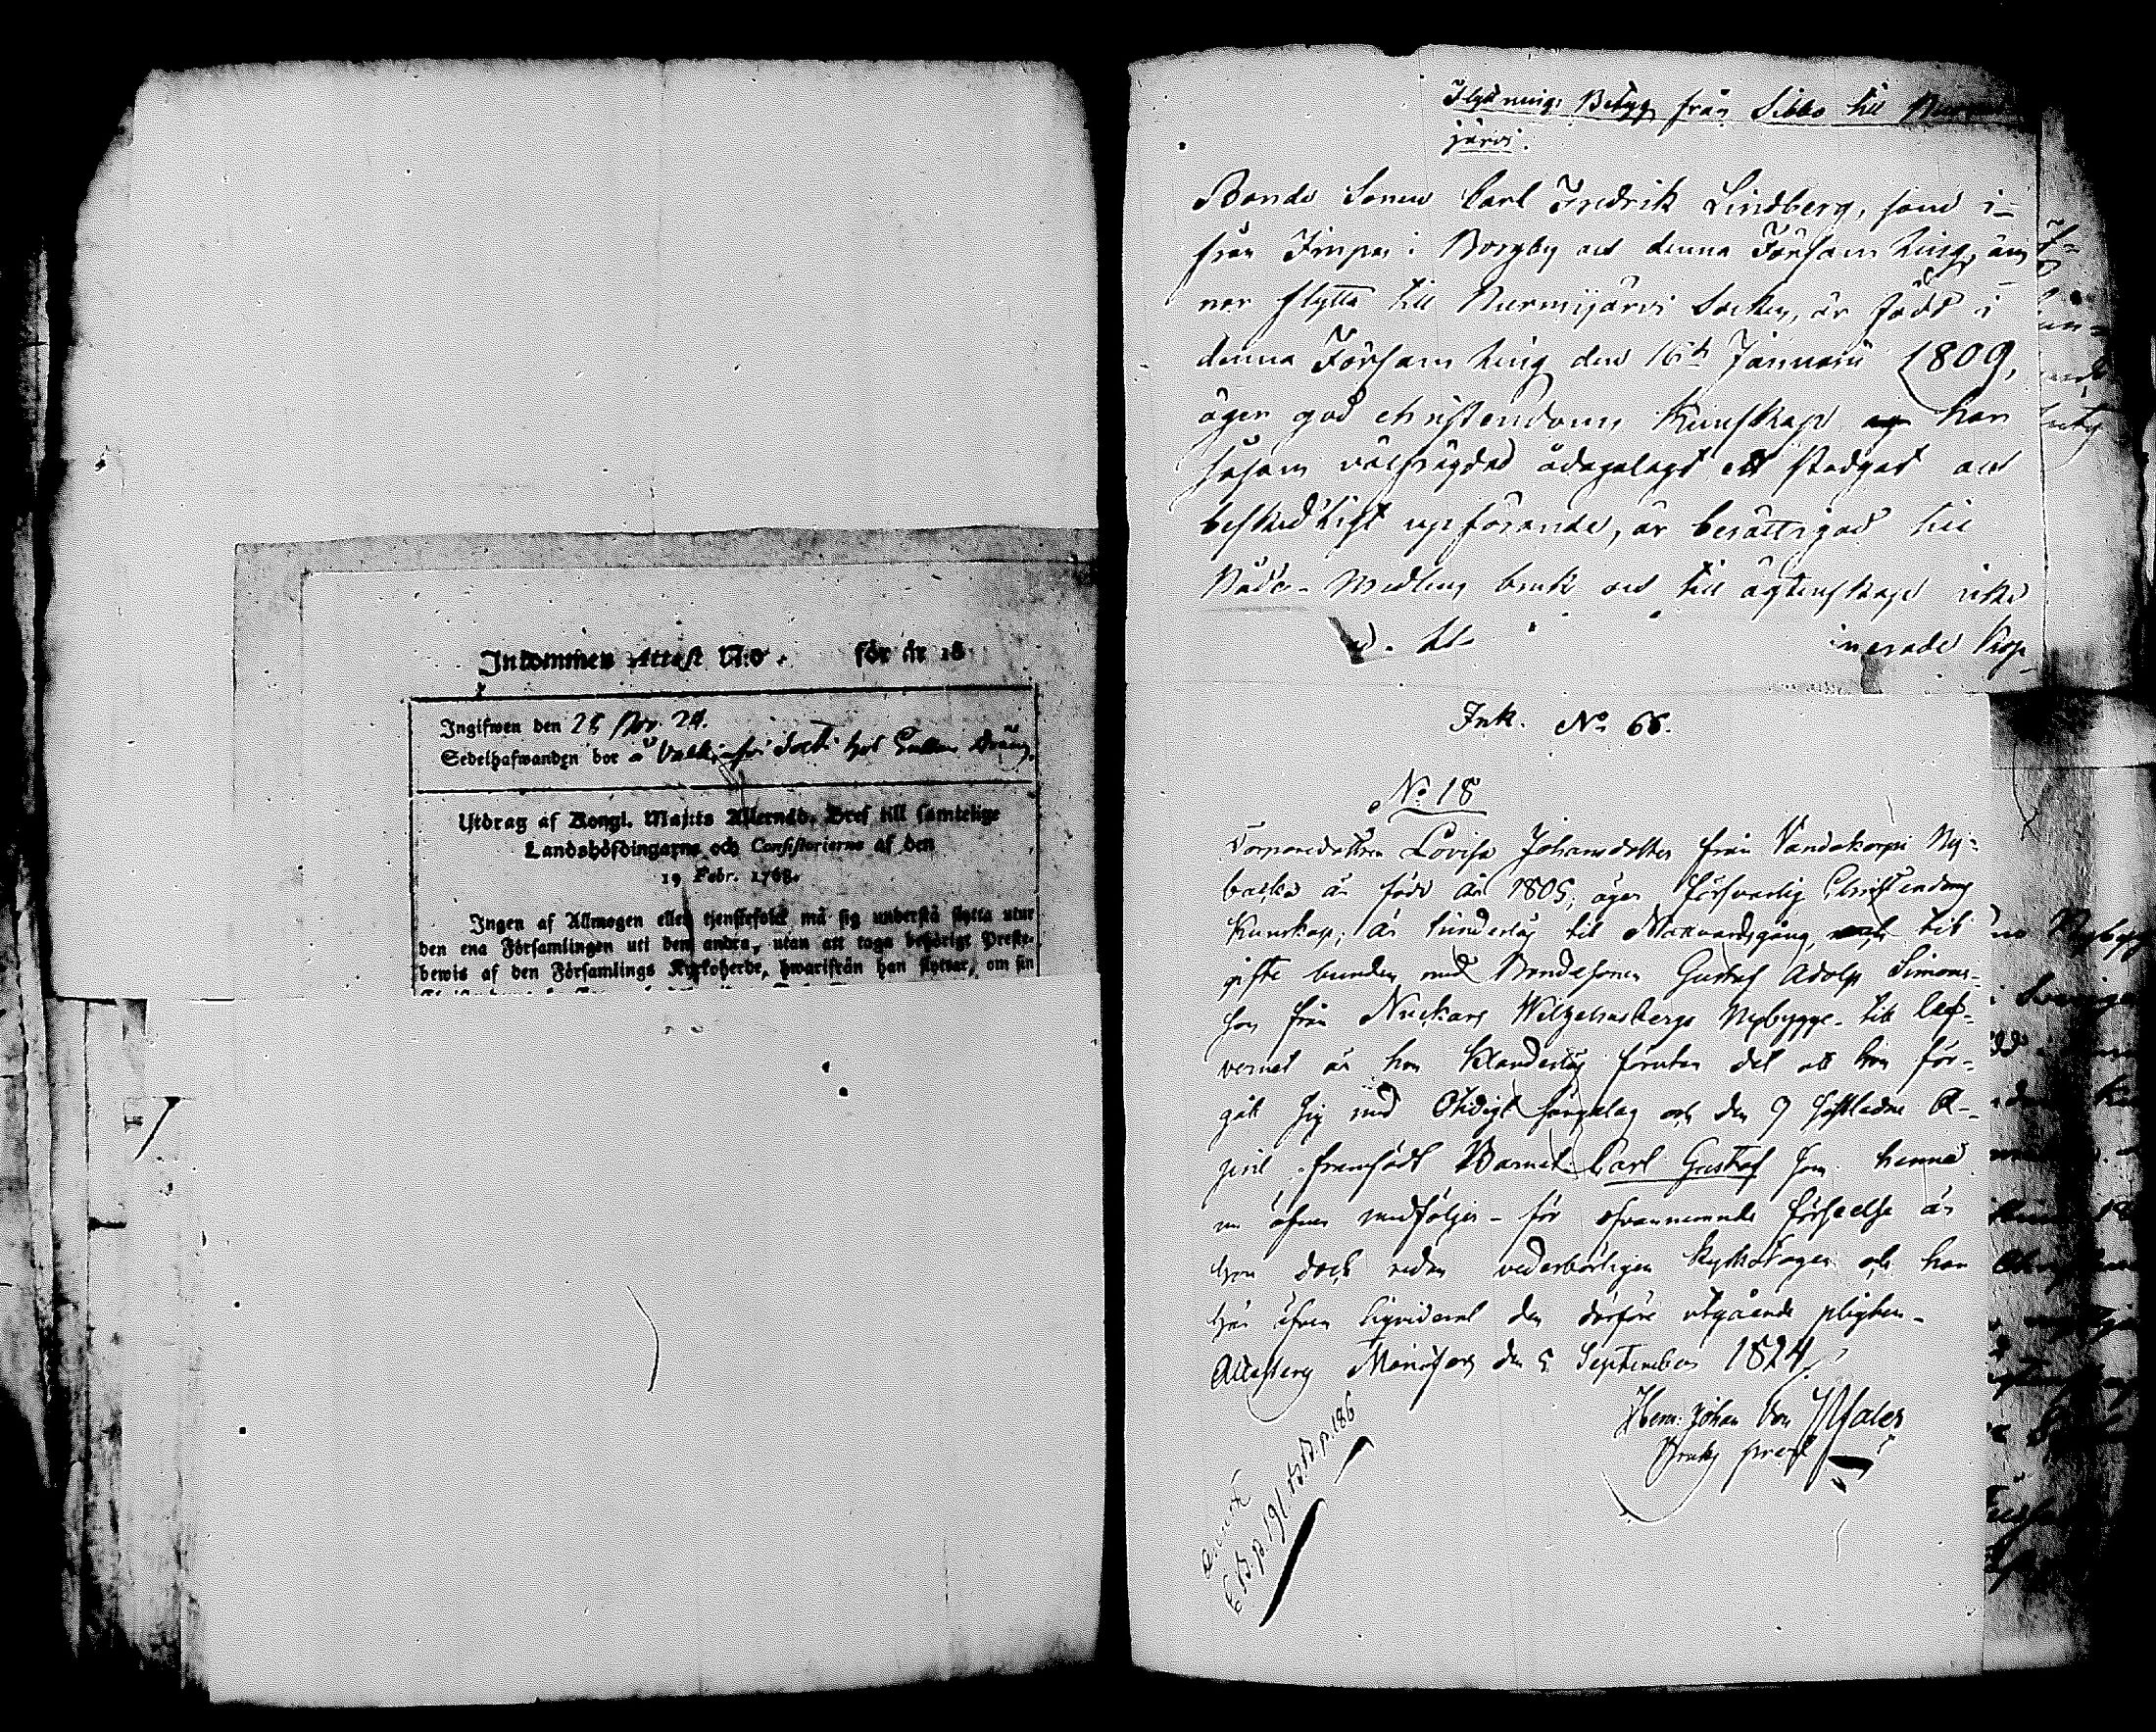 Inkommen Attest N:o . för år 18
Ingifwen den 28 Nov. 24.
Sedelhafwanden bor å
Utdrag af Kongl. Maj:ts Allernåd. Bref till samtelige
Landshöfdingarne och Consistorierne af den
19 Febr. 1768.
Ingen af Allmogen eller tjenstefolck må sig understå flytta utur
den ena Församlingen uti den andra, utan att taga behörigt Preste-
bewis af den Församlings Kyrkoherde, hwarifrån han flyttar, om sin
Flyttnings Betyg från Sibbo till Nurmi-
järvi.
Bonde Sonen Carl Fredrik Lindberg, som i-
från Impas i Borgby ock denna Församling, äm
nar flytta till Nurmijärvi Socken, är född i
denna Församling den 16de Januarii 1809,
äger god christendoms Kunskap har
såsom välfrägdad ådagalagt ett stadgat och
beskedligt upförande, är berättigad till
Nåde-Medlens bruk och till ägtenskap icke
nerade Kop-
Ink. No 66.
No 18
Torparedottren Lovisa Johansdotter från Vandakorpi Ny-
backa är född år 1805, äger försvarlig Christendoms
Kunskap; är hinderlös til Nattvardsgång, til
gifte bunden med Bondesonen Gustaf Adolf Simons-
son från Nuckars Wilhelmsbergs Nybygge - till lef-
vernet är hon klanderlös förutan det att hon för-
gått sig med Otidigt sängalag och den 9 sistledne A-
pril framfödt Barnet Carl Gustaf som henne
nu äfven medföljer - för ofvannemnde förseelse är
hon dock redan vederbörligen kyrkotagen och har
här äfven liqviderat den derföre utgående pligten -
Attesterar Mariefors den 5 September 1824
Herm: Johan von Pfaler
Bruks prest
C. B. p. 191. B. B. p. 186